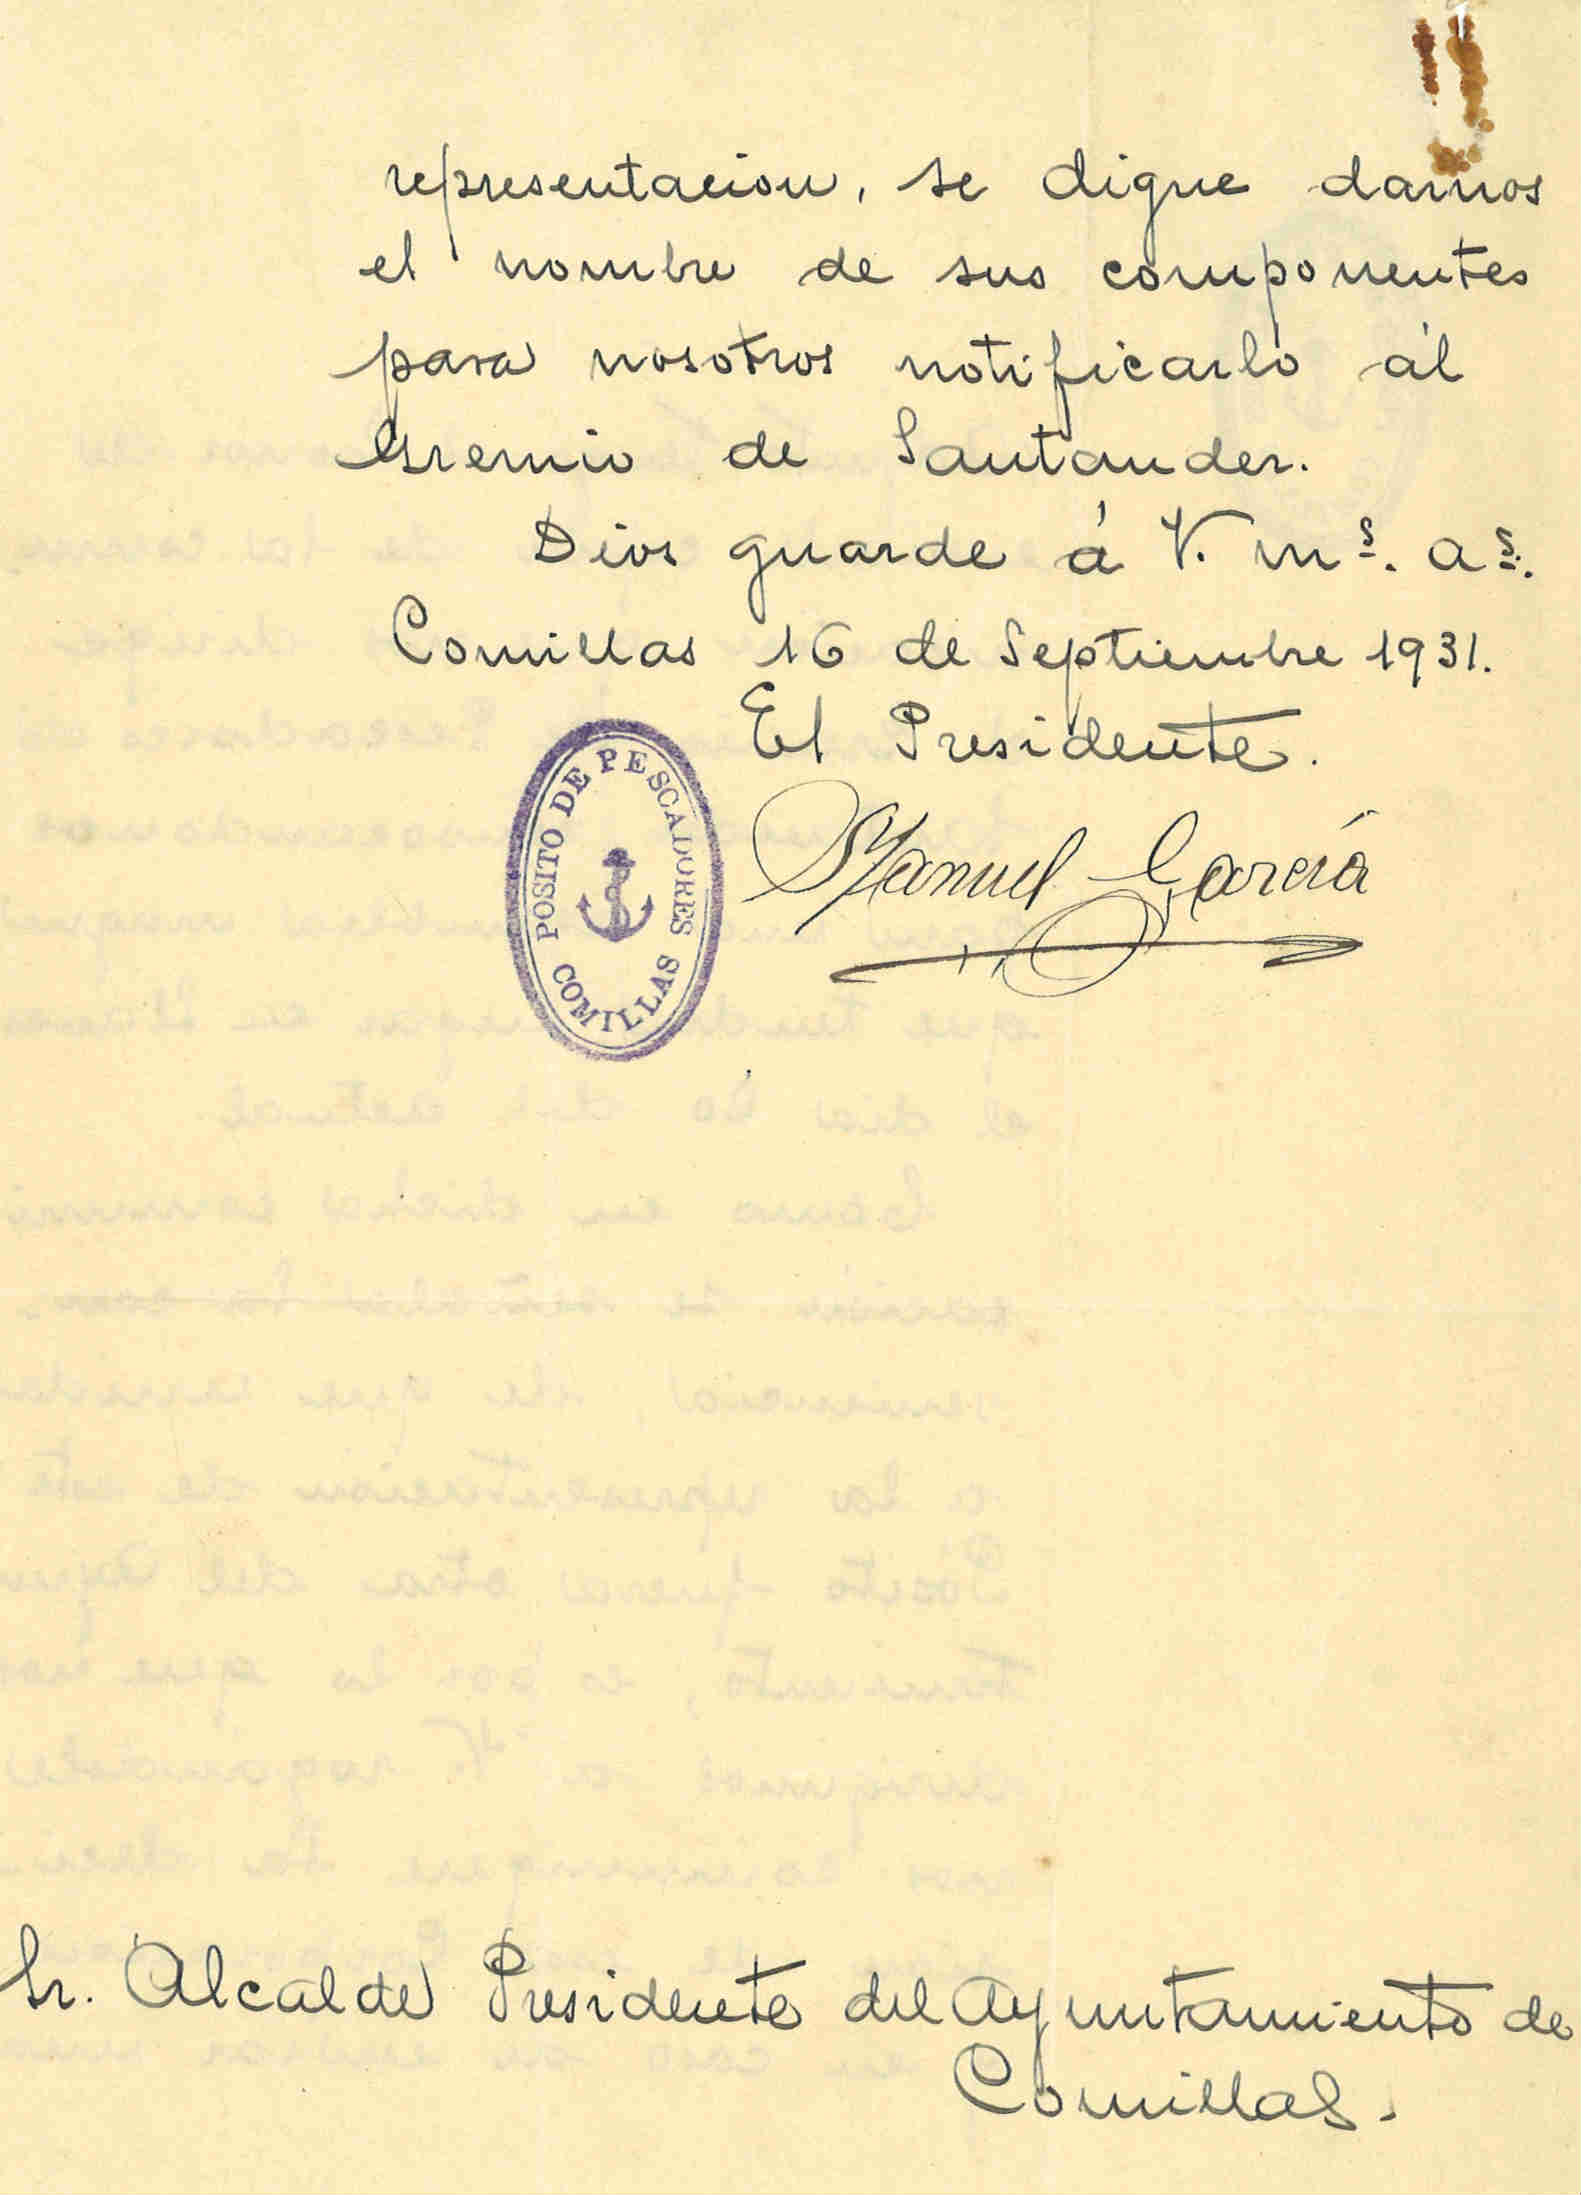 representacion, se digne darnos
el nombre de sus componentes
para nosotros notificarlo ál
Gremio de Santander.
Dios guarde á V. mˢ. aˢ.
Comillas 16 de Septiembre 1931.
El Presidente.
POSITO DE PESCADORES
COMILLAS
Manuel García
Sr. Alcalde Presidente del Ayuntamiento de
Comillas.